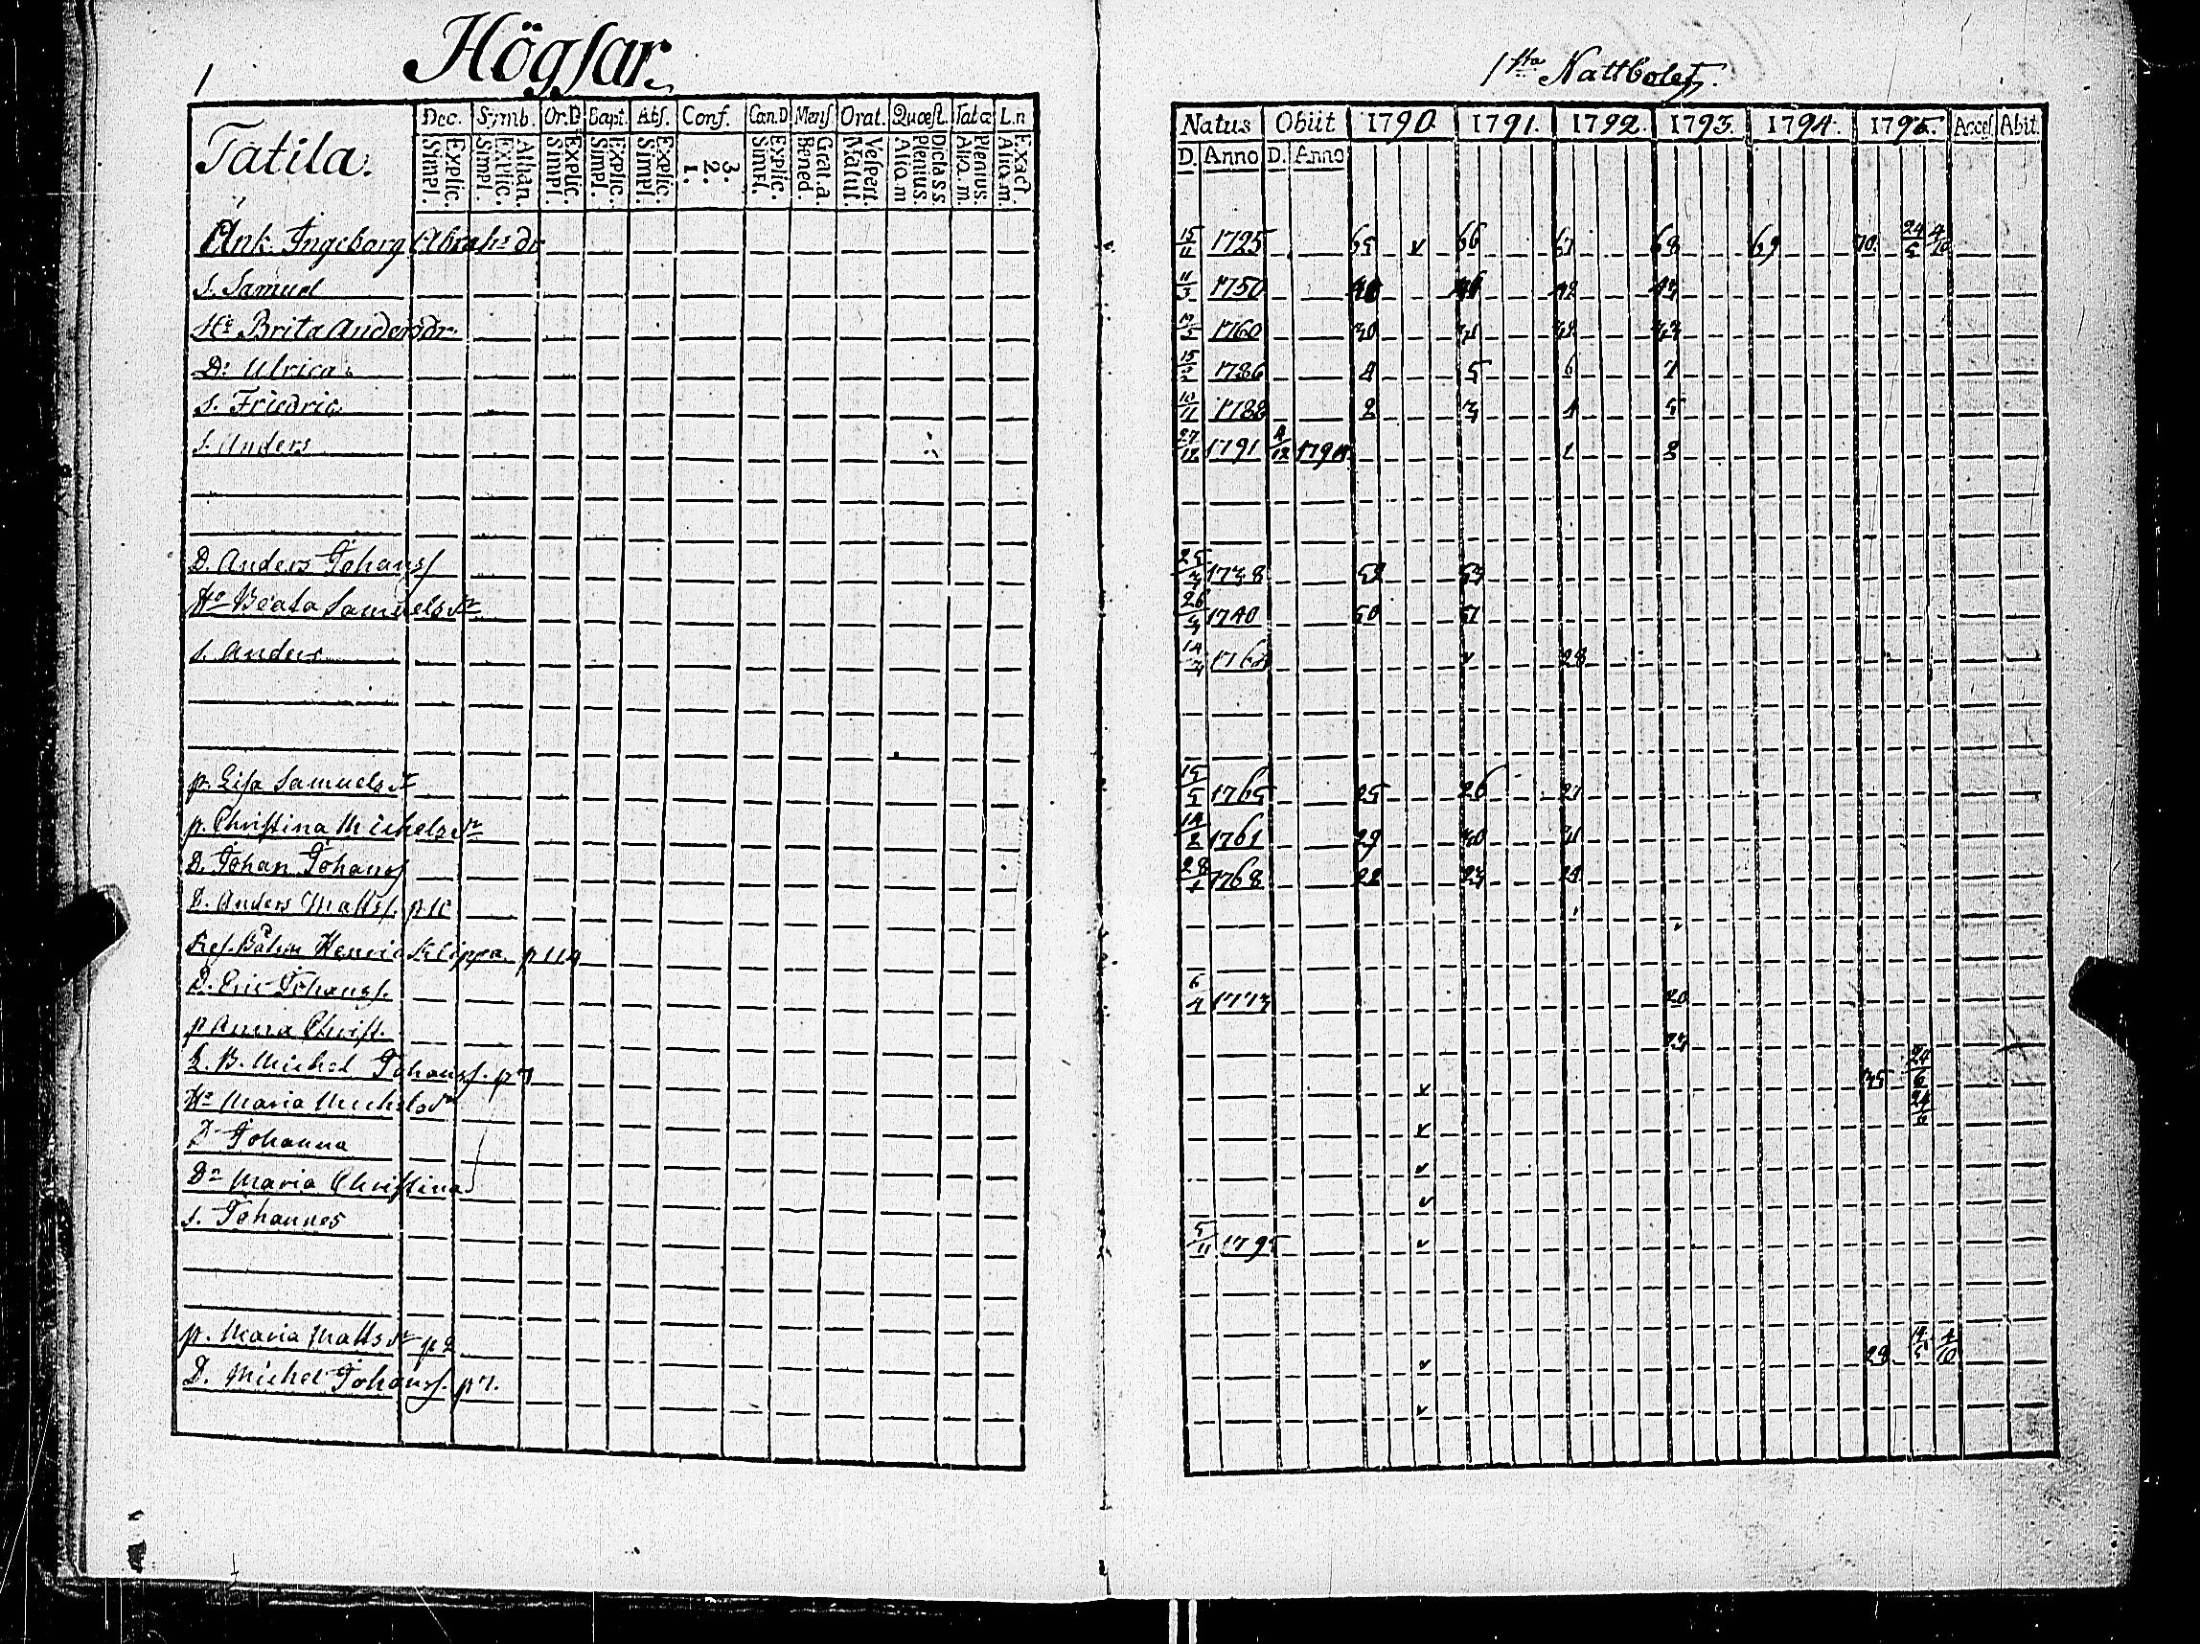 1
Högsar.
1sta Nattbolet.
Tatila.
Dec. Symb. Or.D Bapt. Abs. Conf. Can.D Mens. Orat. Quæst. Tabæ L.n
Explic. Simpl. Athan. Explic. Simpl. Explic. Simpl. Explic. Simpl. Explic. Simpl. 3. 2. 1. Explic. Simpl. Grat.a. Bened. Vespert. Matut. Dictass Plenius. Aliq.m Plenius. Aliq.m. Exact. Aliq.m.
Natus Obiit 1790. 1791. 1792. 1793. 1794. 1795. Acces Abit.
D. Anno D. Anno
Änk. Ingeborg Abrah:s dr 15/11 1725 65 v 66 67 68 69 70. 24/5 4/10
S. Samuel 11/3 1750 40 41 42 43
H:o Brita Andersdr 1760 30 31 32 33
D: Ulrica 1786 4 5 6 7
S. Friedric 10/11 1788 2 3 4 5
S. Anders 27/12 1791 4/12 1 2
D. Anders Johans 25/3 1738 52 53
H:o Beata Samuelsdr 26/9 1740 50 51
S. Anders 28
p. Lisa Samuelsdr 15/5 1765 25 26 27
p. Christina Michelsdr 14/2 1761 29 30 31
D. Johan Johans 28/1 1768 22 23 24
D. Anders Matts.
Henric Klippa. p 114
D. Eric Johans. 6/4 1773 20
p Anna Christ. 23
Michel Johans. p 7 v 35 24/6
H:o Maria Michelsdr v 24/6
D Johanna v
Dr Maria Christina v
S. Johannes 5/11 1795 v
p. Maria Mattsdr p 2 v 28
D. Michel Johans. p 7. v